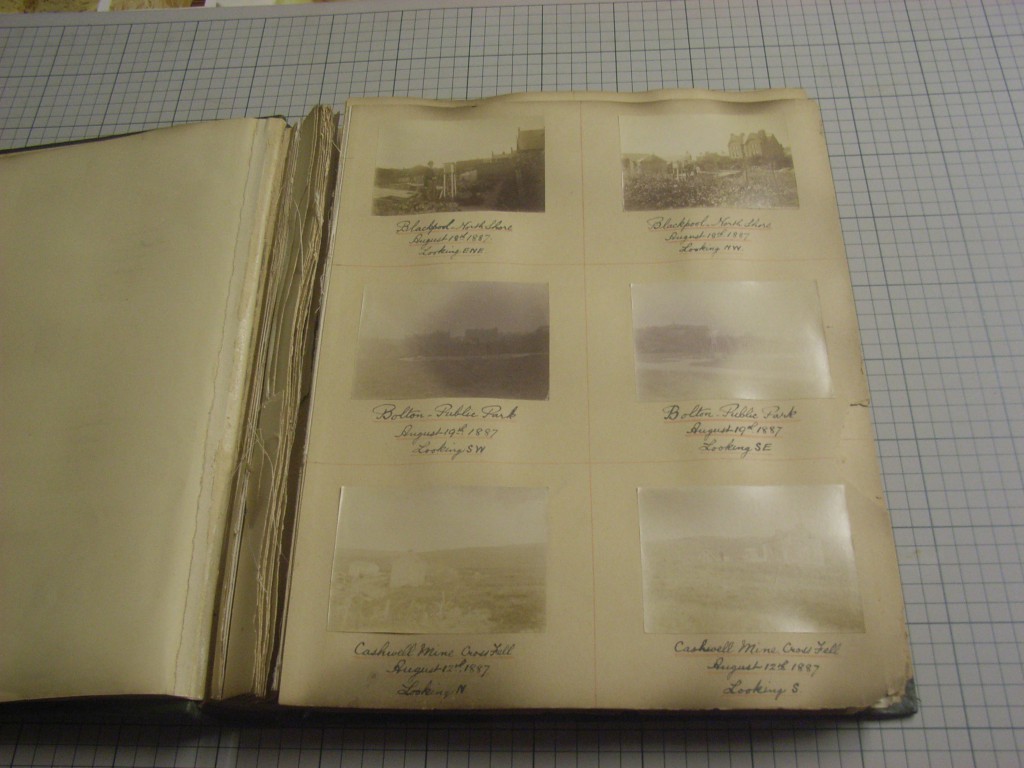 Blackpool-North Shore
August 18th 1887
Looking ENE
Blackpool-North Shore
August 18th 1887
Looking NW
Bolton-Public Park
August 19th 1887
Looking SW
Bolton-Public Park
August 19th 1887
Looking SE
Cashwell Mine Cross Fell
August 12th 1887
Looking N
Cashwell Mine Cross Fell
August 12th 1887
Looking S